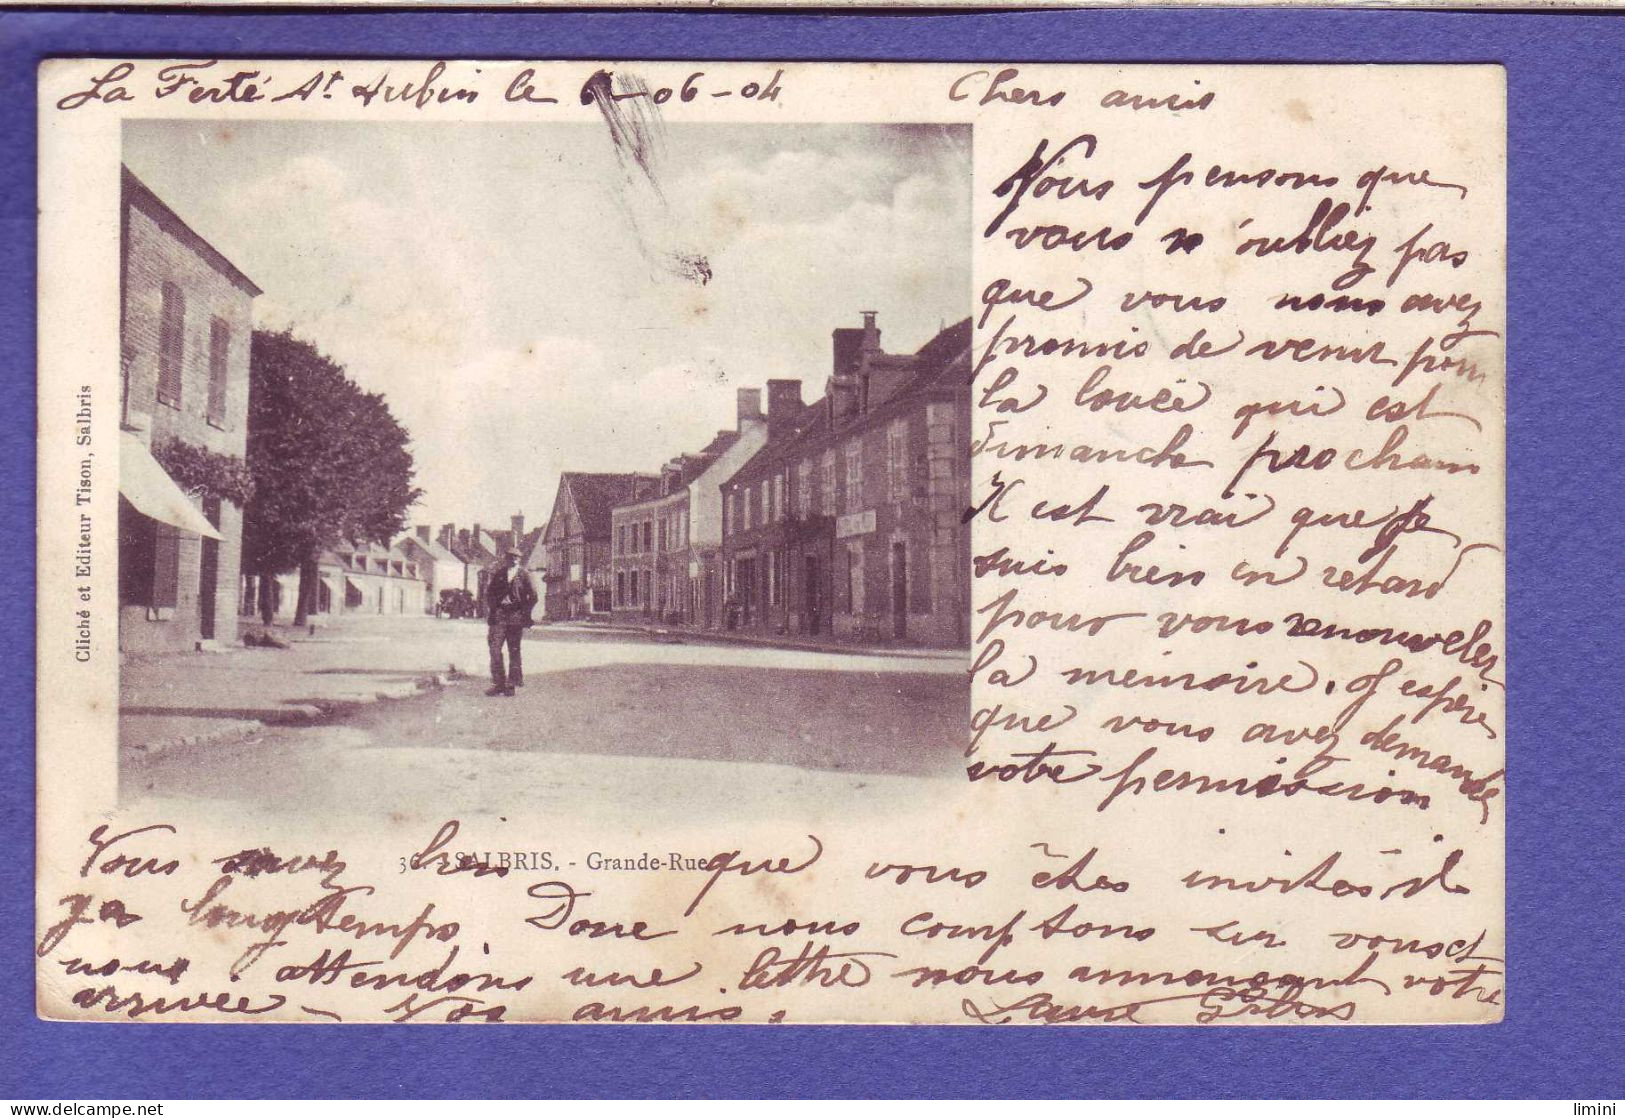 La Ferté St Aubin le 6-06-04
Chers amis
Nous pensons que
vous n'oubliez pas
que vous nous avez
promis de venir pour
la louée qui est
dimanche prochain
Il est vrai que je
suis bien en retard
pour vous renouveler
la mémoire. J'espère
que vous avez demandé
votre permission
Vous savez bien que vous êtes invités il
y a longtemps. Donc nous comptons sur vous et
nous attendons une lettre nous annonçant votre
arrivée - Vos amis.
Laure
36. - SALBRIS. - Grande-Rue
Cliché et Editeur Tison, Salbris
limini
delcampe.net